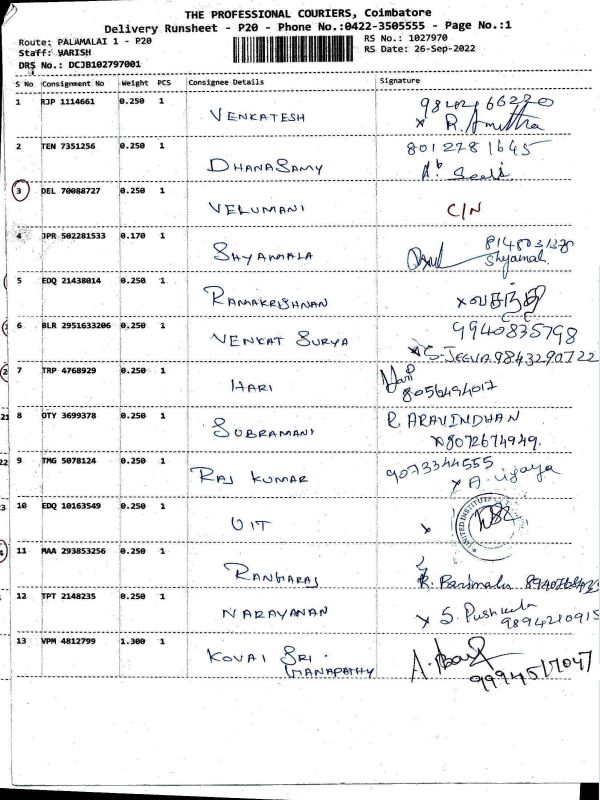 THE PROFESSIONAL COURIERS, Coimbatore
Delivery Runsheet - P20 - Phone No.:0422-3505555 - Page No.:1
Route: PALAMALAI 1 - P20
RS No.: 1027970
Staff: HARISH
RS Date: 26-Sep-2022
DRS No.: DCJB102797001
S No Consignment No Weight PCS Consignee Details Signature
1 RJP 1114661 0.250 1
VENKATESH
R. Amitha
2 TEN 7351256 0.250 1 8012781645
DHANASAMY
3 DEL 70088727 0.250 1
VELUMANI C/N
4 JPR 502281533 0.170 1
SHYAMALA Shyamal
5 EDQ 21438014 0.250 1
RAMAKRISHNAN x வசந்தி
6 BLR 2951633206 0.250 1 9940835798
VENKAT SURYA x S. JEEVA 9843290722
7 TRP 4768929 0.250 1 Hari
HARI 8056494017
8 OTY 3699378 0.250 1 R. ARAVINDHAN
SUBRAMANI x 8072674949.
9 TMG 5078124 0.250 1 9073344555
RAJ KUMAR x A. vijaya
10 EDQ 10163549 0.250 1
UIT x
UNITED INSTITUTE
11 MAA 293853256 0.250 1
RANGARAJ R. Parimala
12 TPT 2148235 0.250 1
NARAYANAN x S. Pushpula
9894210915
13 VPM 4812799 1.300 1
KOVAI SRI.
GANAPATHY
9994517047